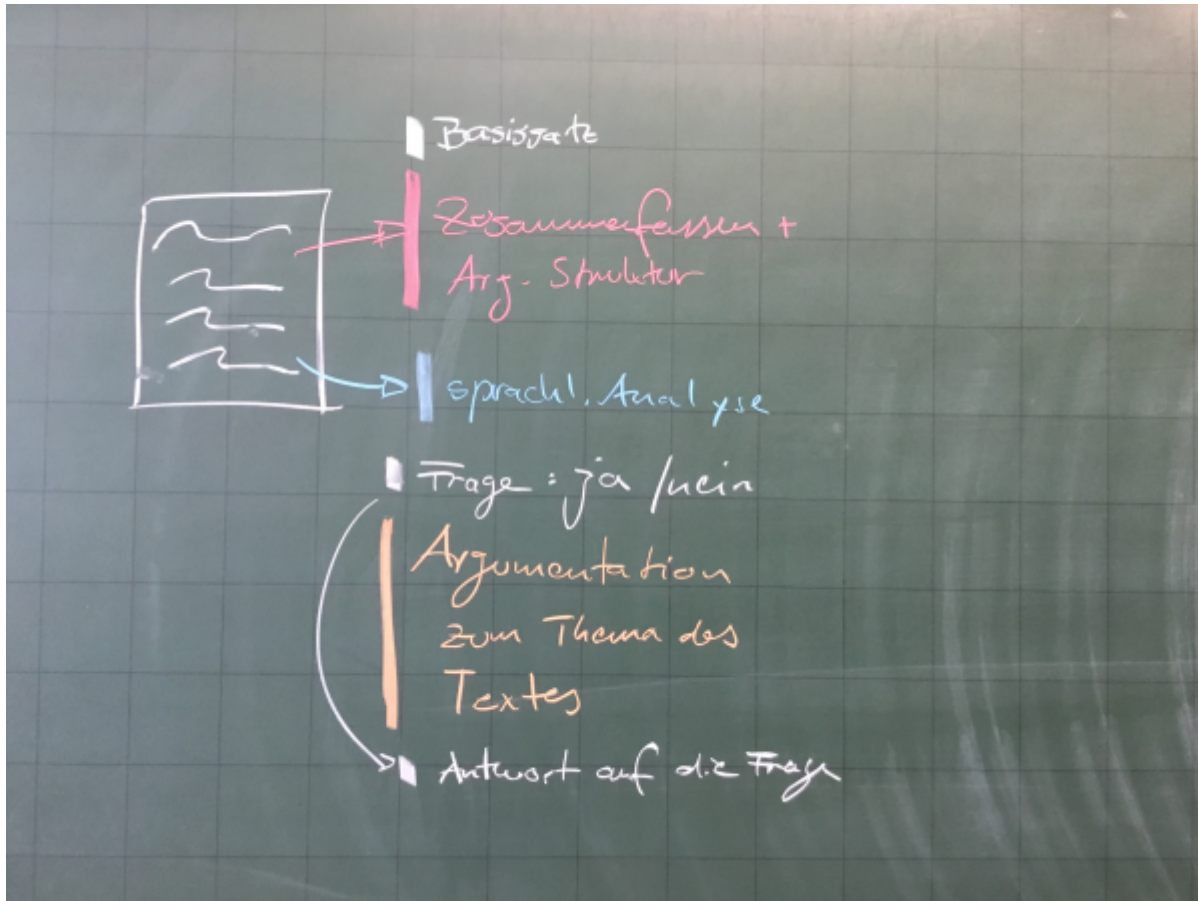 Basissatz
Zusammenfassen +
Arg. Struktur
sprachl. Analyse
Frage: ja/nein
Argumentation
zum Thema des
Textes
Antwort auf die Frage